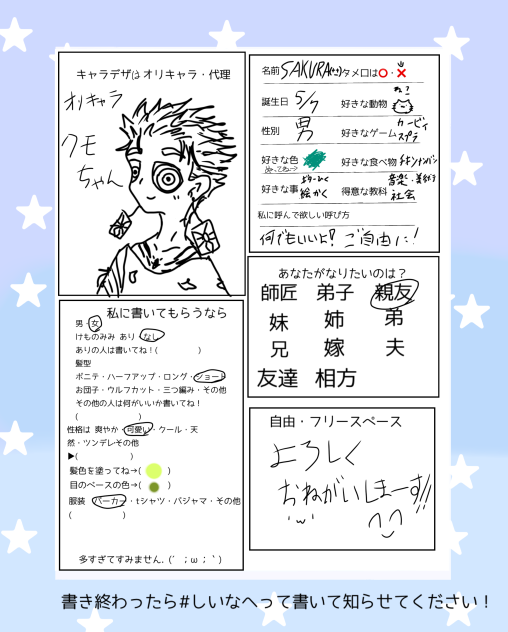 キャラデザは オリキャラ・代理
オリキャラ
クモ
ちゃん
名前 SAKURA タメ口は⭕・❌
誕生日 5/7 好きな動物 ねこ
性別 男 好きなゲーム カービィ スプラ
好きな色 好きな食べ物 チキンナンバン
好きな事 絵かく 得意な教科 音楽・美術 社会
私に呼んで欲しい呼び方
何でもいいよ! ご自由に!
あなたがなりたいのは?
師匠 弟子 親友
妹 姉 弟
兄 嫁 夫
友達 相方
私に書いてもらうなら
男・女
けものみみ あり・なし
ありの人は書いてね!( )
髪型
ポニテ・ハーフアップ・ロング・ショート
お団子・ウルフカット・三つ編み・その他
その他の人は何がいいか書いてね!
( )
性格は 爽やか・可愛い・クール・天
然・ツンデレその他
▶( )
髪色を塗ってね→( )
目のベースの色→( )
服装 パーカー・tシャツ・パジャマ・その他
( )
多すぎてすみません.(´;ω;`)
自由・フリースペース
よろしく
おねがいしまーす!!
書き終わったら#しいなへって書いて知らせてください!